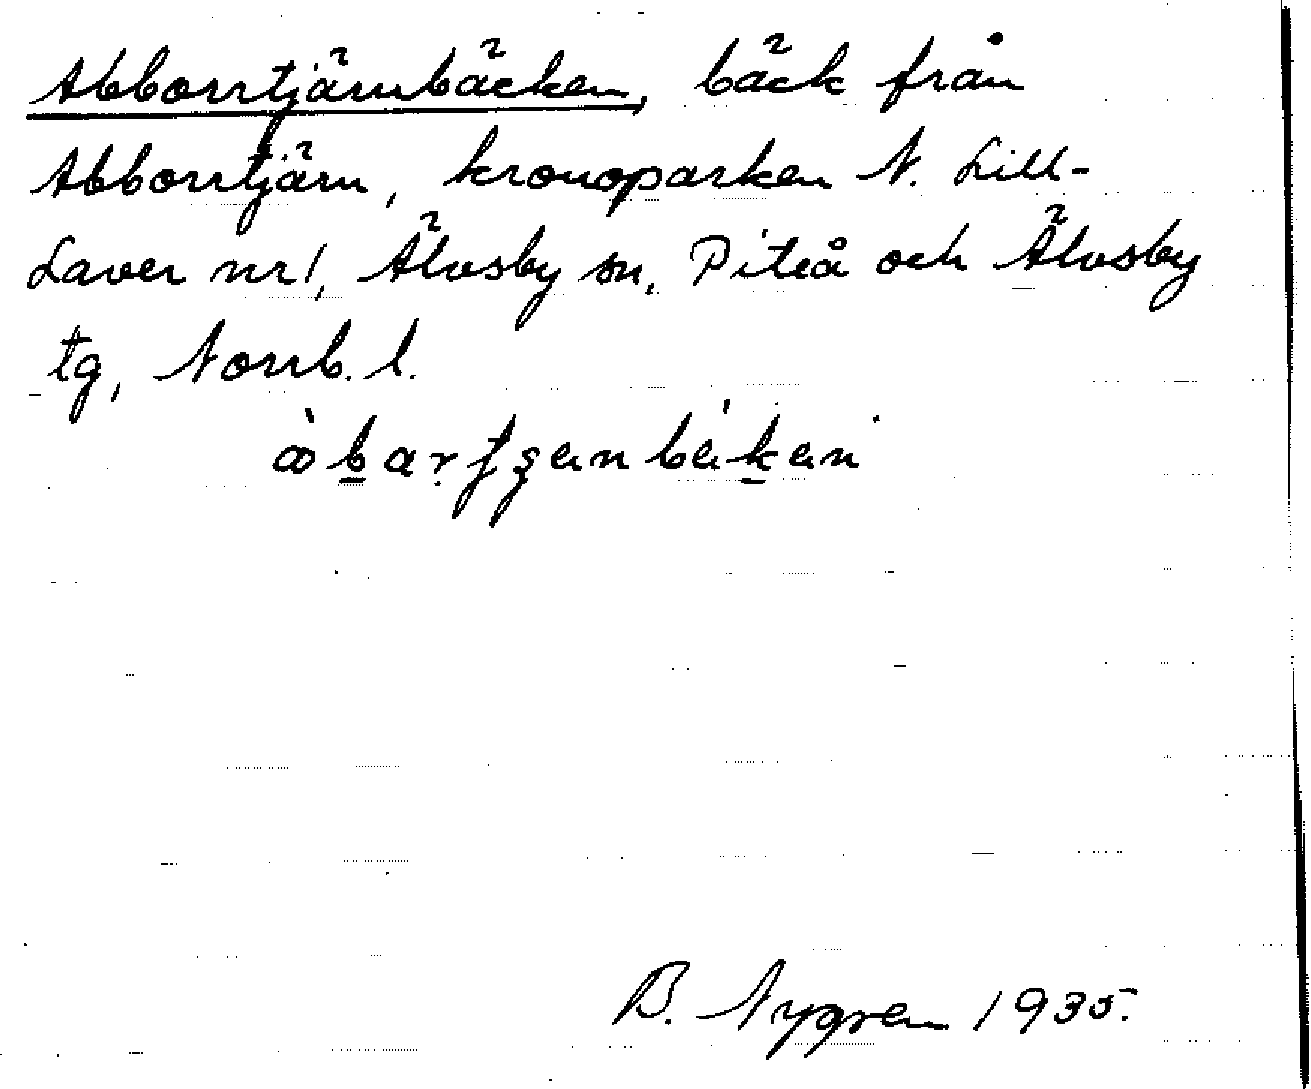 Abborrtjärnbäcken, bäck från
Abborrtjärn, kronoparken N. Lill-
Laver nr 1, Älvsby sn, Piteå och Älvsby
tg, Norrb. l.
B. Nygren 1935.